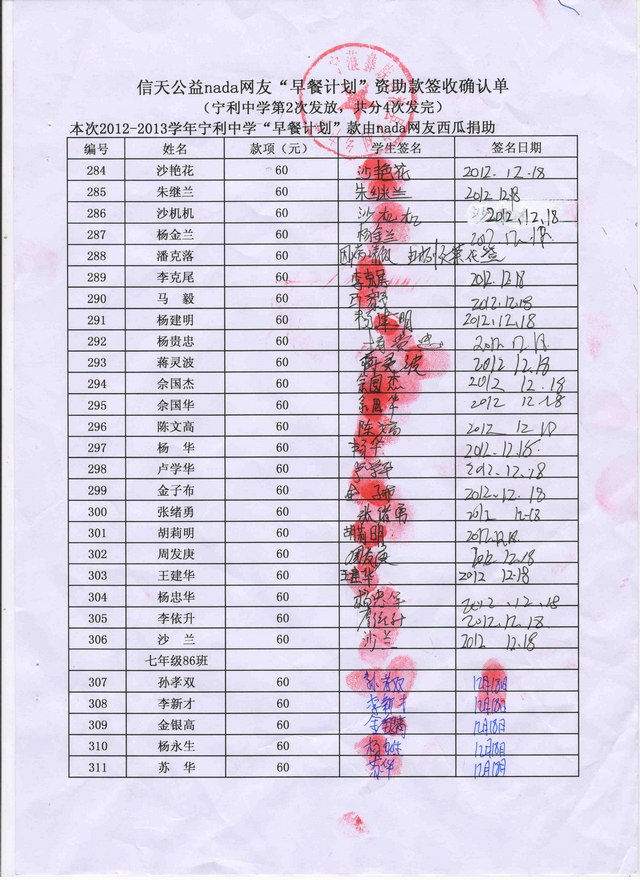 信天公益nada网友“早餐计划”资助款签收确认单
（宁利中学第2次发放，共分4次发完）
本次2012-2013学年宁利中学“早餐计划”款由nada网友西瓜捐助
编号 姓名 款项（元） 学生签名 签名日期
284 沙艳花 60 沙艳花 2012.12.18
285 朱继兰 60 朱继兰 2012.12.18
286 沙机机 60 沙机机 2012.12.18
287 杨金兰 60 杨金兰 2012.12.18
288 潘克落 60
289 李克尾 60 李克尾 2012.12.18
290 马 毅 60 马毅 2012.12.18
291 杨建明 60 杨建明 2012.12.18
292 杨贵忠 60 杨贵忠 2012.12.18
293 蒋灵波 60 蒋灵波 2012 12.18
294 佘国杰 60 佘国杰 2012 12.18
295 佘国华 60 佘国华 2012 12.18
296 陈文高 60 陈文高 2012 12 18
297 杨 华 60 杨华 2012.12.18
298 卢学华 60 卢学华 2012.12.18
299 金子布 60 金子布 2012.12.18
300 张绪勇 60 张绪勇 2012 12.18
301 胡莉明 60 胡莉明 2012.12.18
302 周发庚 60 周发庚 2012.12.18
303 王建华 60 王建华 2012 12.18
304 杨忠华 60 杨忠华 2012.12.18
305 李依升 60 2012.12.18
306 沙 兰 60 沙兰 2012 12.18
七年级86班
307 孙孝双 60 孙孝双 12月18日
308 李新才 60 李新才 12月18日
309 金银高 60 金银高 12月18日
310 杨永生 60 杨永生 12月18日
311 苏 华 60 苏华 12月18日